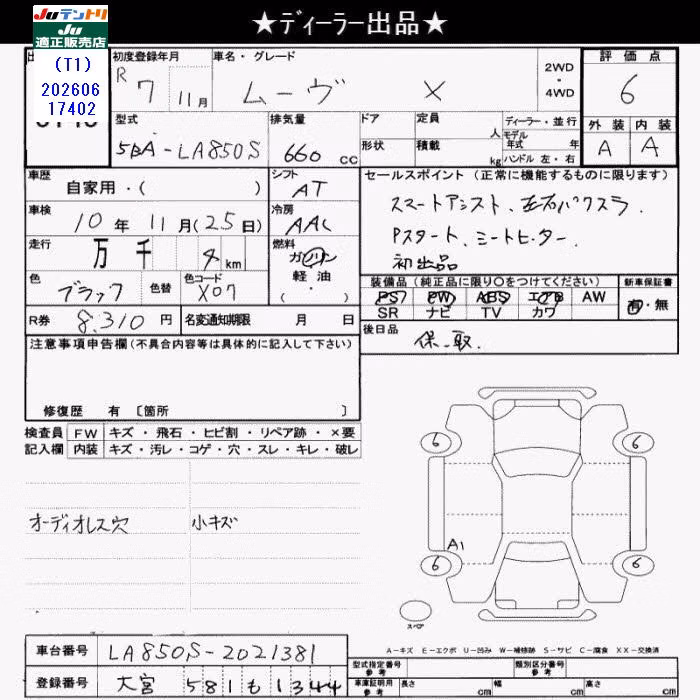 ★ディーラー出品★
JUテントリ
JU
適正販売店
(T1)
202606
17402
初度登録年月
R 7年 11月
車名・グレード
ムーヴ X
2WD
・
4WD
評価点
6
外装 内装
A A
型式
5BA-LA850S
排気量
660 CC
ドア
形状
定員 人
積載 kg
ディーラー・並行
モデル年式 年
ハンドル 左・右
車歴
自家用・( )
シフト
AT
車検
10年 11月(25日)
冷房
AAC
走行
万 千 4 km
燃料
ガソリン
軽油
( ・ )
色
ブラック
色替
色コード
X07
R券
8,310 円
名変通知期限 月 日
セールスポイント(正常に機能するものに限ります)
スマートアシスト、左右パクスラ、
Pスタート、シートヒーター、
初出品
装備品(純正品に限り○をつけてください)
新車保証書
PS PW ABS エアB AW
SR ナビ TV カワ
有・無
後日品
保、取、
注意事項申告欄(不具合内容等は具体的に記入して下さい)
修復歴 有 〔箇所 〕
検査員 FW キズ・飛石・ヒビ割・リペア跡・×要
記入欄 内装 キズ・汚レ・コゲ・穴・スレ・キレ・破レ
オーディオレス穴 小キズ
6 6
A1
6 6
スペア
A-キズ E-エクボ U-凹み W-補修跡 S-サビ C-腐食 XX-交換済
車台番号 LA850S-2021381
登録番号 大宮 581 も 1344
型式指定番号 参考
類別区分番号 参考
車庫証明用 参考
長さ cm 幅 cm 高さ cm